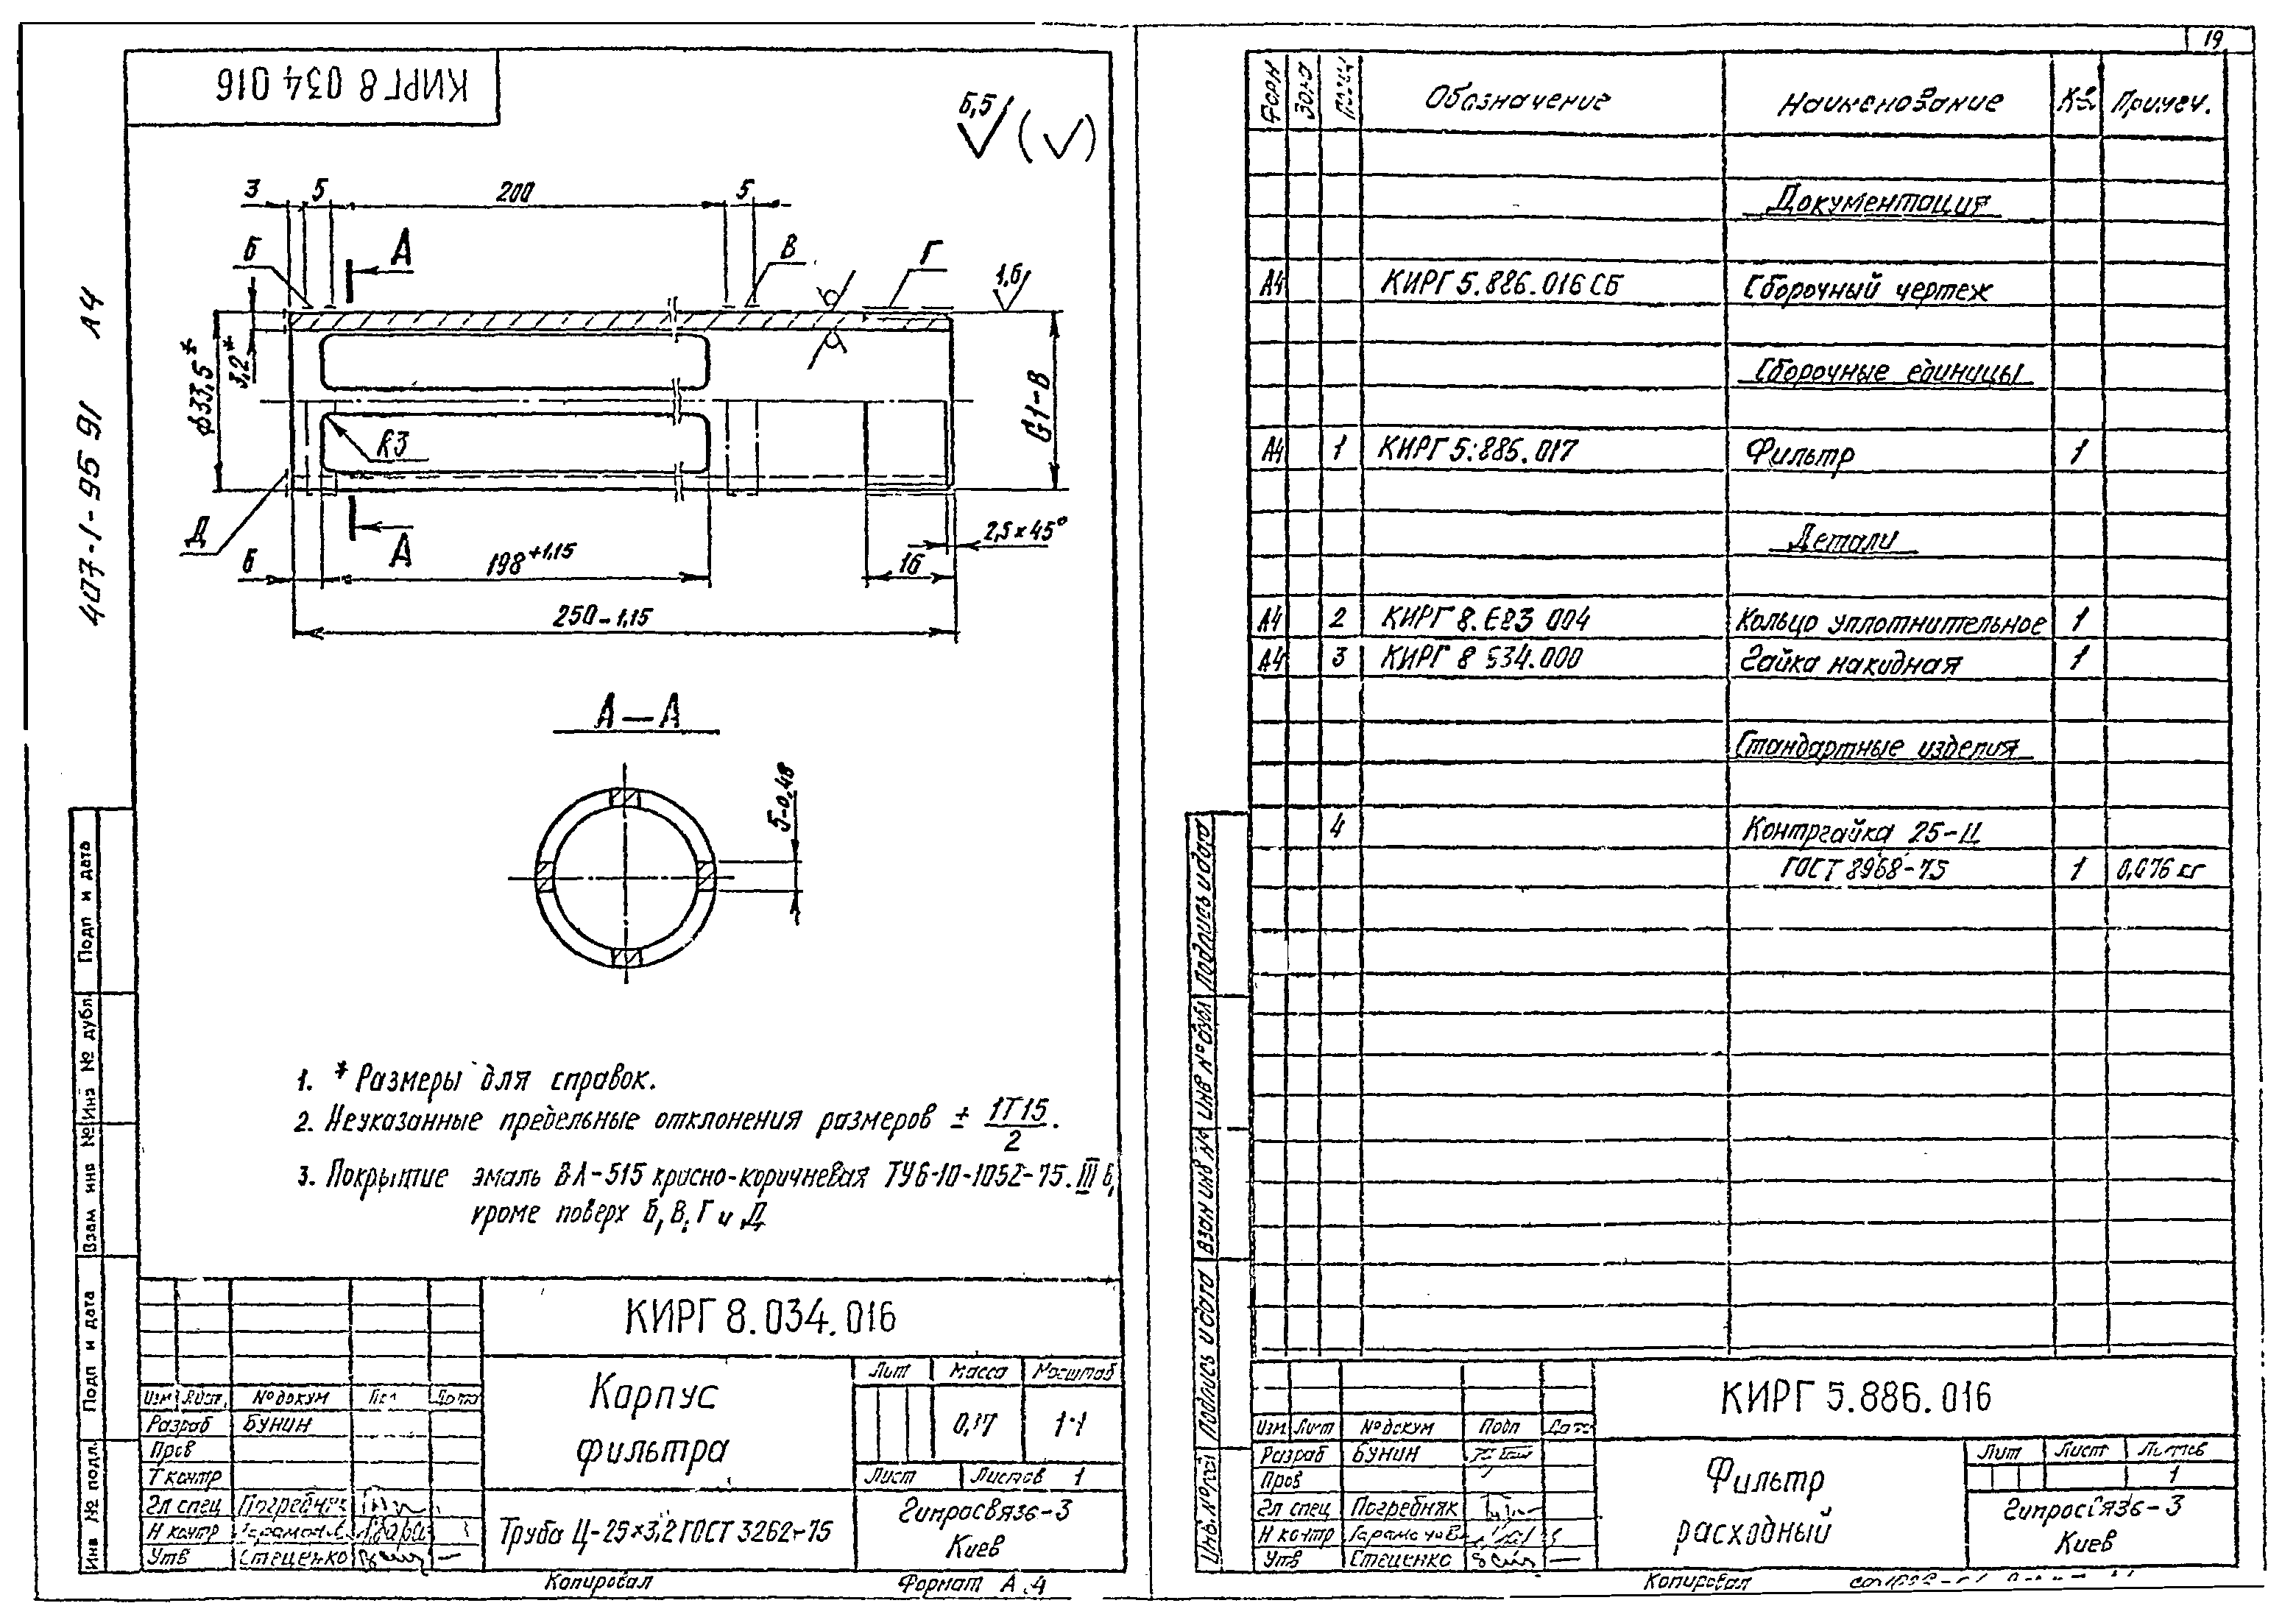 КИРГ 8 034 016
6,5
3
5
200
5
Б
А
В
Г
1,6
ф33,5*
3,2*
R3
G1-В
Д
А
2,5×45°
6
198+1,15
16
250-1,15
А—А
5-0,48
1. * Размеры для справок.
2. Неуказанные предельные отклонения размеров ± IT15/2.
3. Покрытие эмаль ВЛ-515 красно-коричневая ТУ6-10-1052-75. III 6,
кроме поверх Б, В, Г и Д
407-1-95 91 А4
Подп и дата
Инв № дубл.
Взам инв №
Подп и дата
Инв № подл.
КИРГ 8.034.016
Изм Лист № докум Дата
Разраб БУНИН
Пров
Т контр
Гл спец Погребняк
Н контр
Утв Стеценко
Корпус
фильтра
Лит Масса Масштаб
0,37 1:1
Лист Листов 1
Труба Ц-25×3,2 ГОСТ 3262-75
Гипросвязь-3
Киев
Копировал Формат А4
19
Форм Зона Обозначение Наименование Примеч.
Документация
А4 КИРГ 5.886.016 СБ Сборочный чертеж
Сборочные единицы
А4 1 КИРГ 5.886.017 Фильтр 1
Детали
А4 2 КИРГ 004 Кольцо уплотнительное 1
А4 3 КИРГ 8 Гайка накидная 1
Стандартные изделия
4 Контргайка 25-Ц
ГОСТ 8968-75 1 0,076 кг
Подпись и дата
Инв № дубл
Взам инв №
Подпись и дата
Инв. № подл
КИРГ 5.886.016
Изм Лист № докум Подп Дата
Разраб БУНИН
Пров
Гл спец Погребняк
Н контр
Утв Стеценко
Фильтр
расходный
Лит Лист Листов
1
Гипросвязь-3
Киев
Копировал